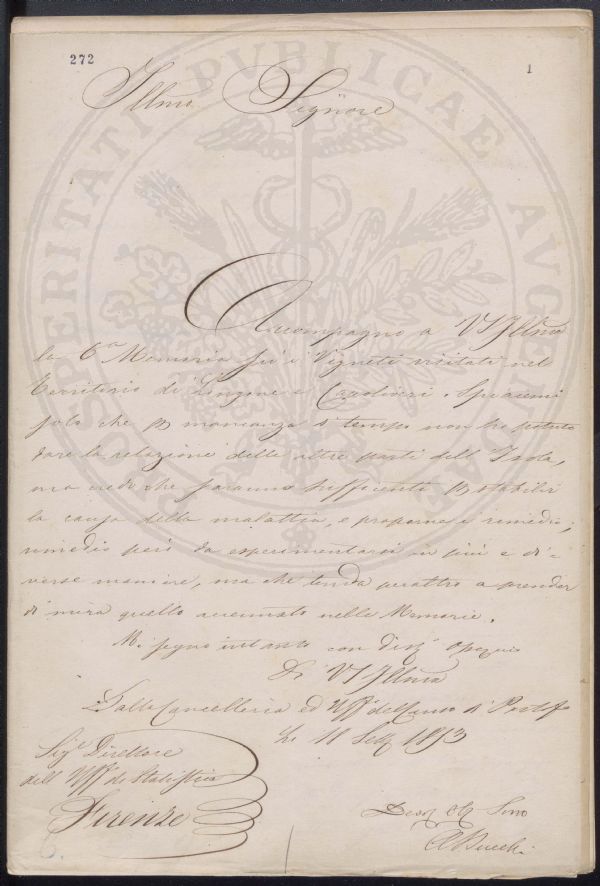 272
1
Illmo Signore
PROSPERITATI PVBLICAE AVGENDAE
Accompagno a VS Illma
la 6a Memoria su i Vigneti visitati nel
Territorio di Lingone e Capoliveri. Spiacemi
solo che p mancanza di tempo non ho potuto
dare la relazione delle altre parti dell'Isola,
ma credo che saranno sufficienti p stabilir
la causa della malattia, e proporne i rimedi;
rimedio però da esperimentarsi in più e di=
verse maniere, ma che tenda peraltro a prender
di mira quello accennato nelle Memorie.
Mi segno intanto con dist. ossequio
Di VS Illma
Dalla Cancelleria ed Uff. del Censo di Portof
Li 11 1853
Sigr Direttore
dell Uff. di Statistica
Firenze
Devo Obb Servo